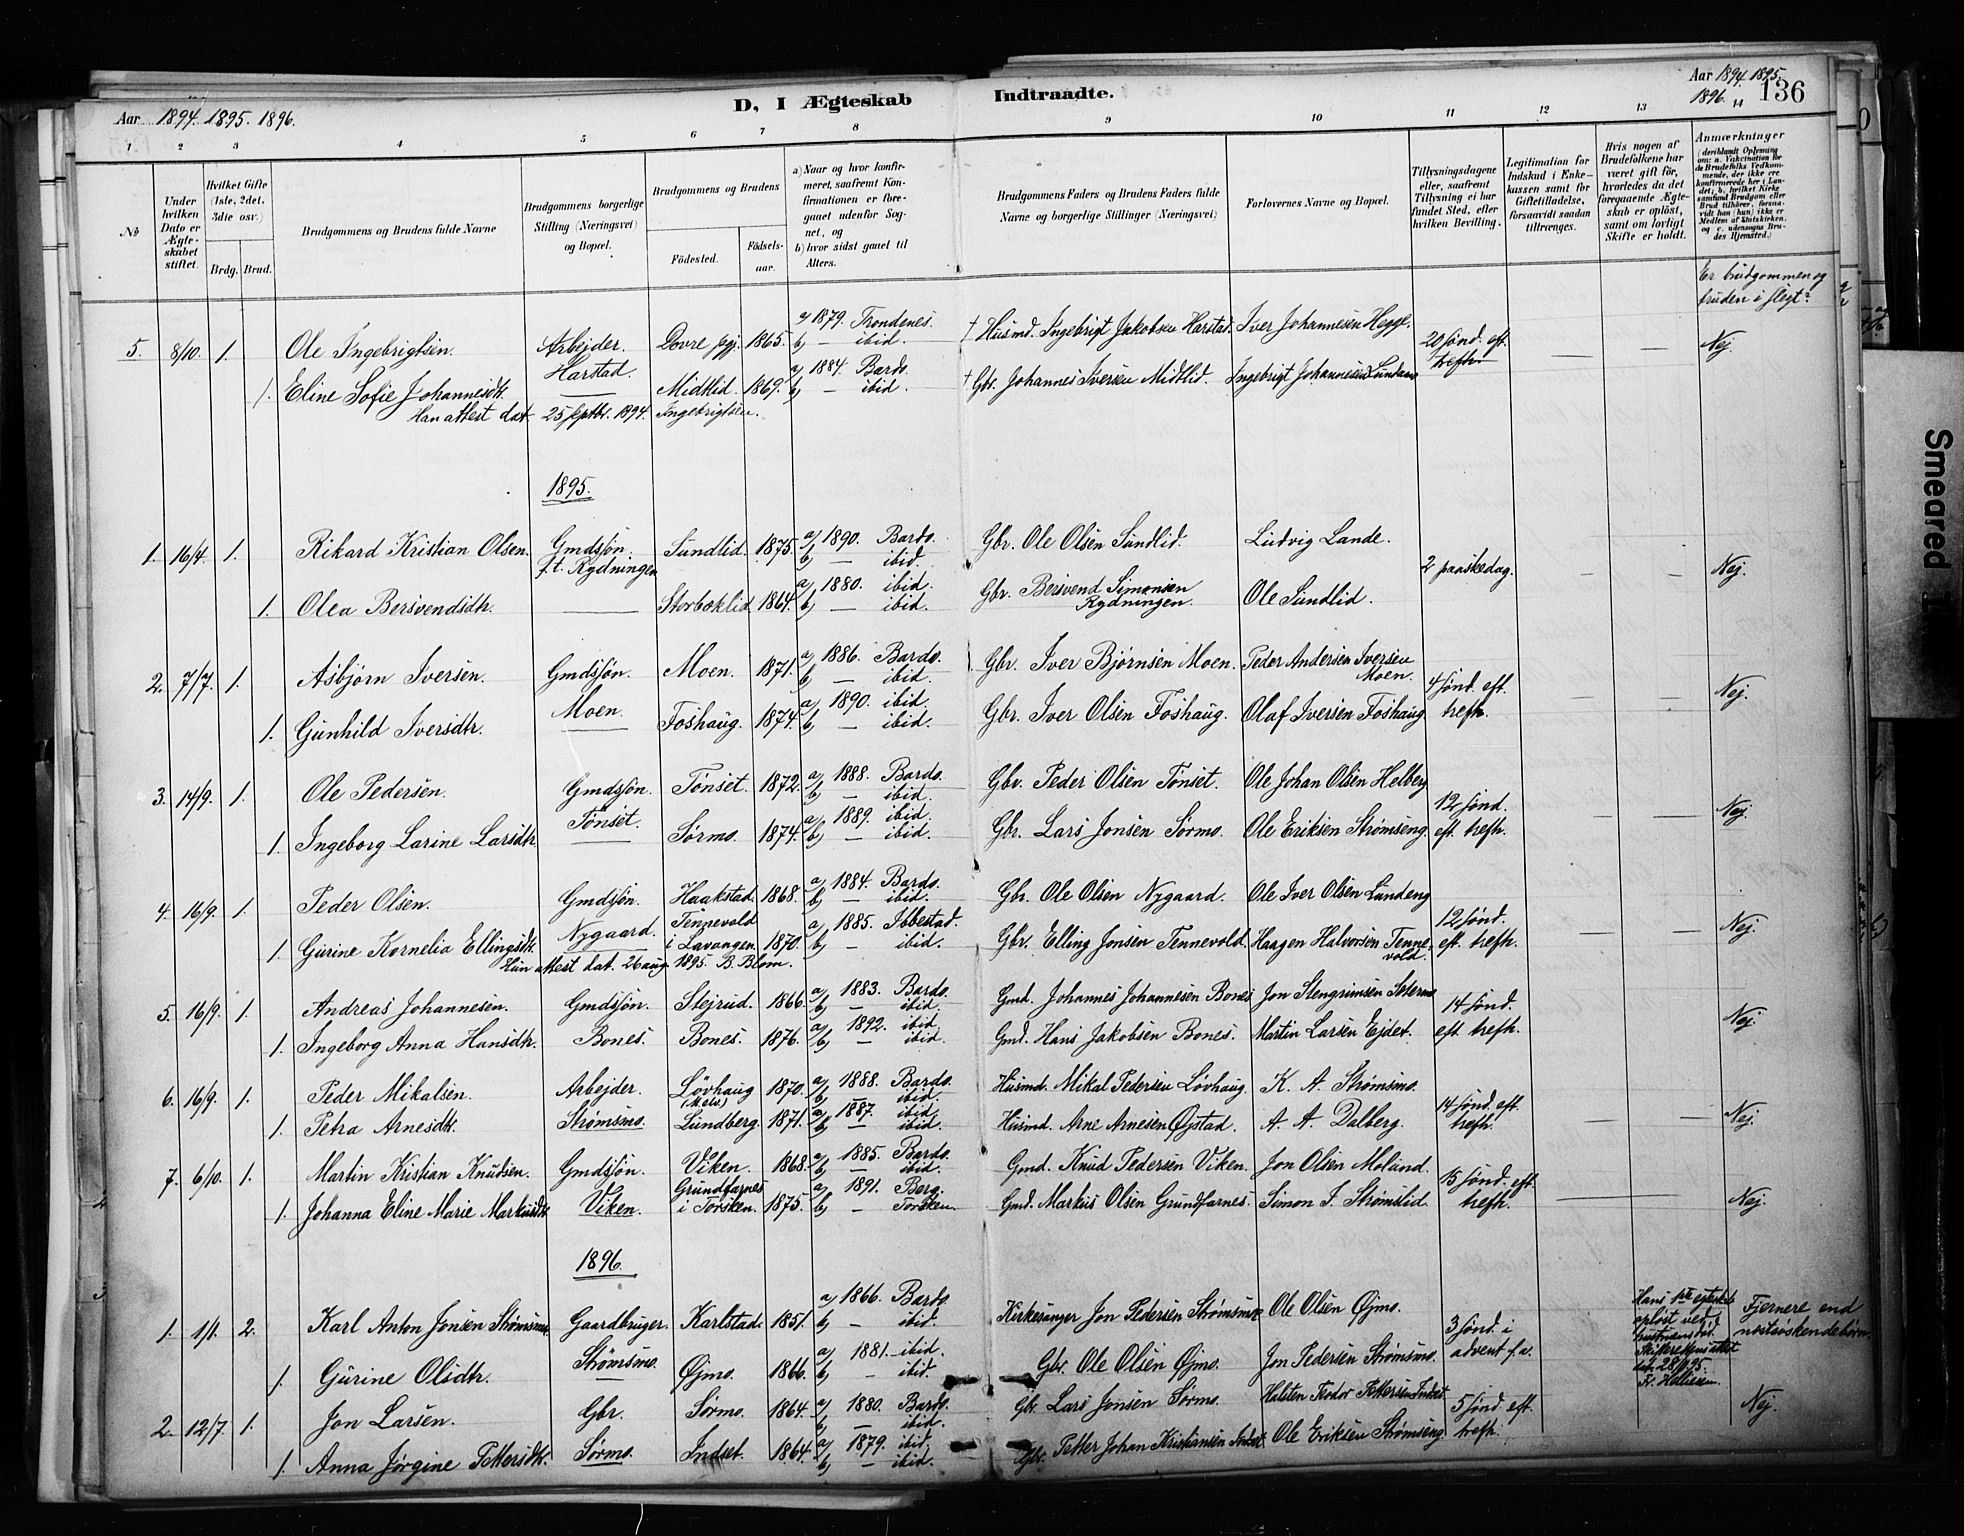 Aar 1894. 1895. 1896.
D, I Ægteskab Indtraadte.
Aar 1894. 1895.
1896.
136
1 2 3 4 5 6 7 8 9 10 11 12 13 14
No
Under hvilken Dato er Ægteskabet stiftet.
Hvilket Gifte (1ste, 2det, 3die osv.)
Brdg. Brud.
Brudgommens og Brudens fulde Navne
Brudgommens borgerlige Stilling (Næringsvei) og Bopæl.
Brudgommens og Brudens
Fødested. Fødsels-aar.
a) Naar og hvor konfirmeret, saafremt Konfirmationen er foregaaet udenfor Sognet, og
b) hvor sidst gaaet til Alters.
Brudgommens Faders og Brudens Faders fulde Navne og borgerlige Stillinger (Næringsvei)
Forlovernes Navne og Bopæl.
Tillysningsdagene eller, saafremt Tillysning ei har fundet Sted, efter hvilken Bevilling.
Legitimation for Indskud i Enkekassen samt for Giftetilladelse, forsaavidt saadan tiltrænges.
Hvis nogen af Brudefolkene har været gift før, hvorledes da det foregaaende Ægteskab er opløst, samt om lovligt Skifte er holdt.
Anmærkninger
(deriblandt Oplysning om: a. Vakcination for de Brudefolks Vedkommende, der ikke ere konfirmerede her i Landet; b. hvilket Kirkesamfund Brudgom eller Brud tilhører, forsaavidt han (hun) ikke er Medlem af Statskirken, og c. udensogns Brudes Hjemsted.)
Er brudgommen og bruden i slegt?
5. 8/10. 1. Ole Ingebrigtsen. Arbejder. Harstad. Dovre pgj. 1865. a) 1879. Trondenes. b) — ibid. † Husmd. Ingebrigt Jakobsen Harstad. Iver Johannesen Heggl. 20 sønd. eft. trefh. — — Nej.
1. Eline Sofie Johannesdtr. — Midtlid. 1869. a) 1884. Bardo. b) — ibid. † Gbr. Johannes Iversen Midtlid. Ingebrigt Johannesen
Han attest dat. 25 septbr. 1894. Ingebrigtsen.
1895.
1. 16/4. 1. Rikard Kristian Olsen. Gmdsjøn. f. t. Rydningen Sundlid. 1875. a) 1890. Bardo. b) — ibid. Gbr. Ole Olsen Sundlid. Ludvig Lande. 2 paaskedag. — — Nej.
1. Olea Bersvendsdtr. — Storbæklid. 1864. a) 1880. ibid. b) — ibid. Gbr. Bersvend Simonsen Rydningen. Ole Sundlid.
2. 7/7. 1. Asbjørn Iversen. Gmdsjøn. Moen. Moen. 1871. a) 1886. Bardo. b) — ibid. Gbr. Iver Bjørnsen Moen. Peder Andersen Iversen Moen. 4 sønd. eft. trefh. — — Nej.
1. Gunhild Iversdtr. — Foshaug. 1874. a) 1890. ibid. b) — ibid. Gbr. Iver Olsen Foshaug. Olaf Iversen Foshaug
3. 14/9. 1. Ole Pedersen. Gmdsjøn. Tønset. Tønset. 1872. a) 1888. Bardo. b) — ibid. Gbr. Peder Olsen Tønset. Ole Johan Olsen Helberg 12 sønd. eft. trefh. — — Nej.
1. Ingeborg Larine Larsdtr. — Sørmo. 1874. a) 1889. ibid. b) — ibid. Gbr. Lars Jonsen Sørmo. Ole Eriksen Strømseng.
4. 16/9. 1. Peder Olsen. Gmdsjøn. Nygaard. Haakstad. 1868. a) 1884. Bardo. b) — ibid. Gbr. Ole Olsen Nygaard. Ole Iver Olsen Lundeng 12 sønd. eft. trefh. — — Nej.
1. Gurine Kornelia Ellingsdtr. — Tennevold i Lavangen. 1870. a) 1885. Ibbestad. b) — ibid. Gbr. Elling Jonsen Tennevold. Haagen Halvorsen Tennevold.
Hun attest dat. 26 aug. 1895. B. Blom.
5. 16/9. 1. Andreas Johannesen. Gmdsjøn. Bones. Stejrud. 1866. a) 1883. Bardo. b) — ibid. Gmd. Johannes Johannesen Bones Jon Stengrimsen 14 sønd. eft. trefh. Nej.
1. Ingeborg Anna Hansdtr. Bones. 1876. a) 1892. ibid. b) — ibid. Gmd. Hans Jakobsen Bones. Martin Larsen Ejdet.
6. 16/9. 1. Peder Mikalsen. Arbejder. Strømsmo. Løvhaug 1870. a) 1888. Bardo. b) — ibid. Husmd. Mikal Pedersen Løvhaug. K. A. Strømsmo. 14 sønd. eft. trefh. — Nej.
1. Petra Arnesdtr. Lundberg. 1871. a) 1887. ibid. b) — ibid. Husmd. Arne Arnesen Øjstad. A. A. Dalberg.
7. 6/10. 1. Martin Kristian Knudsen. Gmdsjøn. Viken. Viken. 1868. a) 1885. Bardo. b) — ibid. Gmd. Knud Pedersen Viken. Jon Olsen Molund. 15 sønd. eft. trefh. — — Nej.
1. Johanna Eline Marie Markusdtr. Grundfarnes i Torsken. 1875. a) 1891. Berg. b) — Torsken. Gmd. Markus Olsen Grundfarnes. Simon J. Strømslid.
1896.
1. 1/1. 2. Karl Anton Jonsen Strømsmo. Gaardbruger. Strømsmo. Karlstad. 1851. a) 1866. Bardo. b) — ibid. Kirkesanger Jon Pedersen Strømsmo. Ole Olsen Øjmo. 3 sønd. i advent f. a. Hans 1ste egteskab opløst ved hustruens død. Skifterettens attest dat. 28/11 95. Fjernere end nestsøskendebørn.
1. Gurine Olsdtr. — Øjmo. 1866. a) 1881. ibid. b) — ibid. Gbr. Ole Olsen Øjmo. Jon Pedersen Strømsmo.
2. 12/7. 1. Jon Larsen. Gbr. Sørmo. Sørmo. 1864. a) 1880. Bardo. b) — ibid. Gbr. Lars Jonsen Sørmo. Halsten Teodor Pettersen Indset 5 sønd. eft. trefh. Nej.
1. Anna Jørgine Pettersdtr. Indset. 1864. a) 1879. ibid. b) — ibid. Gbr. Petter Johan Kristiansen Indset Ole Eriksen Strømseng
Smeared